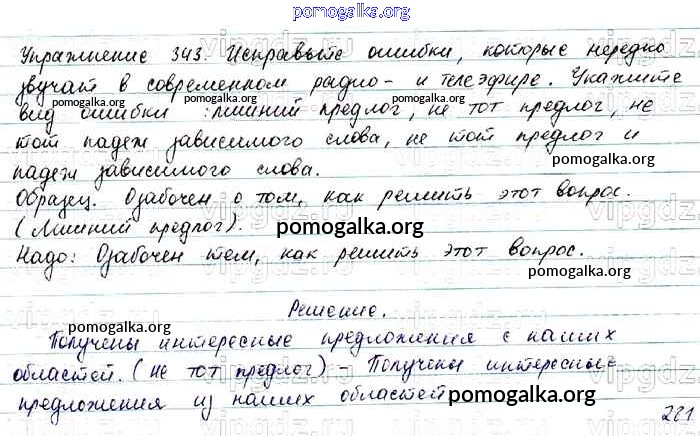 pomogalka.org
Упражнение 343. Исправьте ошибки, которые нередко
звучат в современном радио- и телеэфире. Укажите
pomogalka.org pomogalka.org pomogalka.org
вид ошибки : лишний предлог, не тот предлог, не
тот падеж зависимого слова, не тот предлог и
падеж зависимого слова.
pomogalka.org
Образец. Озабочен о том, как решить этот вопрос.
(Лишний предлог).
pomogalka.org
Надо: Озабочен тем, как решить этот вопрос.
pomogalka.org
Решение.
pomogalka.org
Получены интересные предложения с наших
областей. (не тот предлог) – Получены интересные
предложения из наших областей
pomogalka.org
221